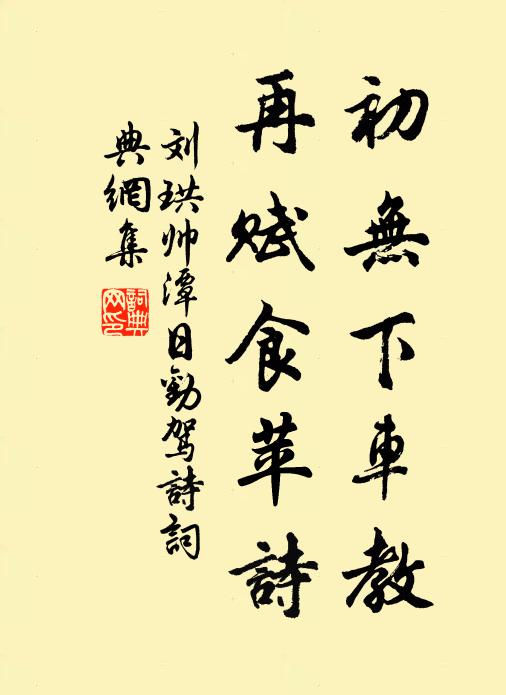 初無下車教
再賦食苹詩
刘珙帅潭日勸駕詩詞
典網集
詞典網印